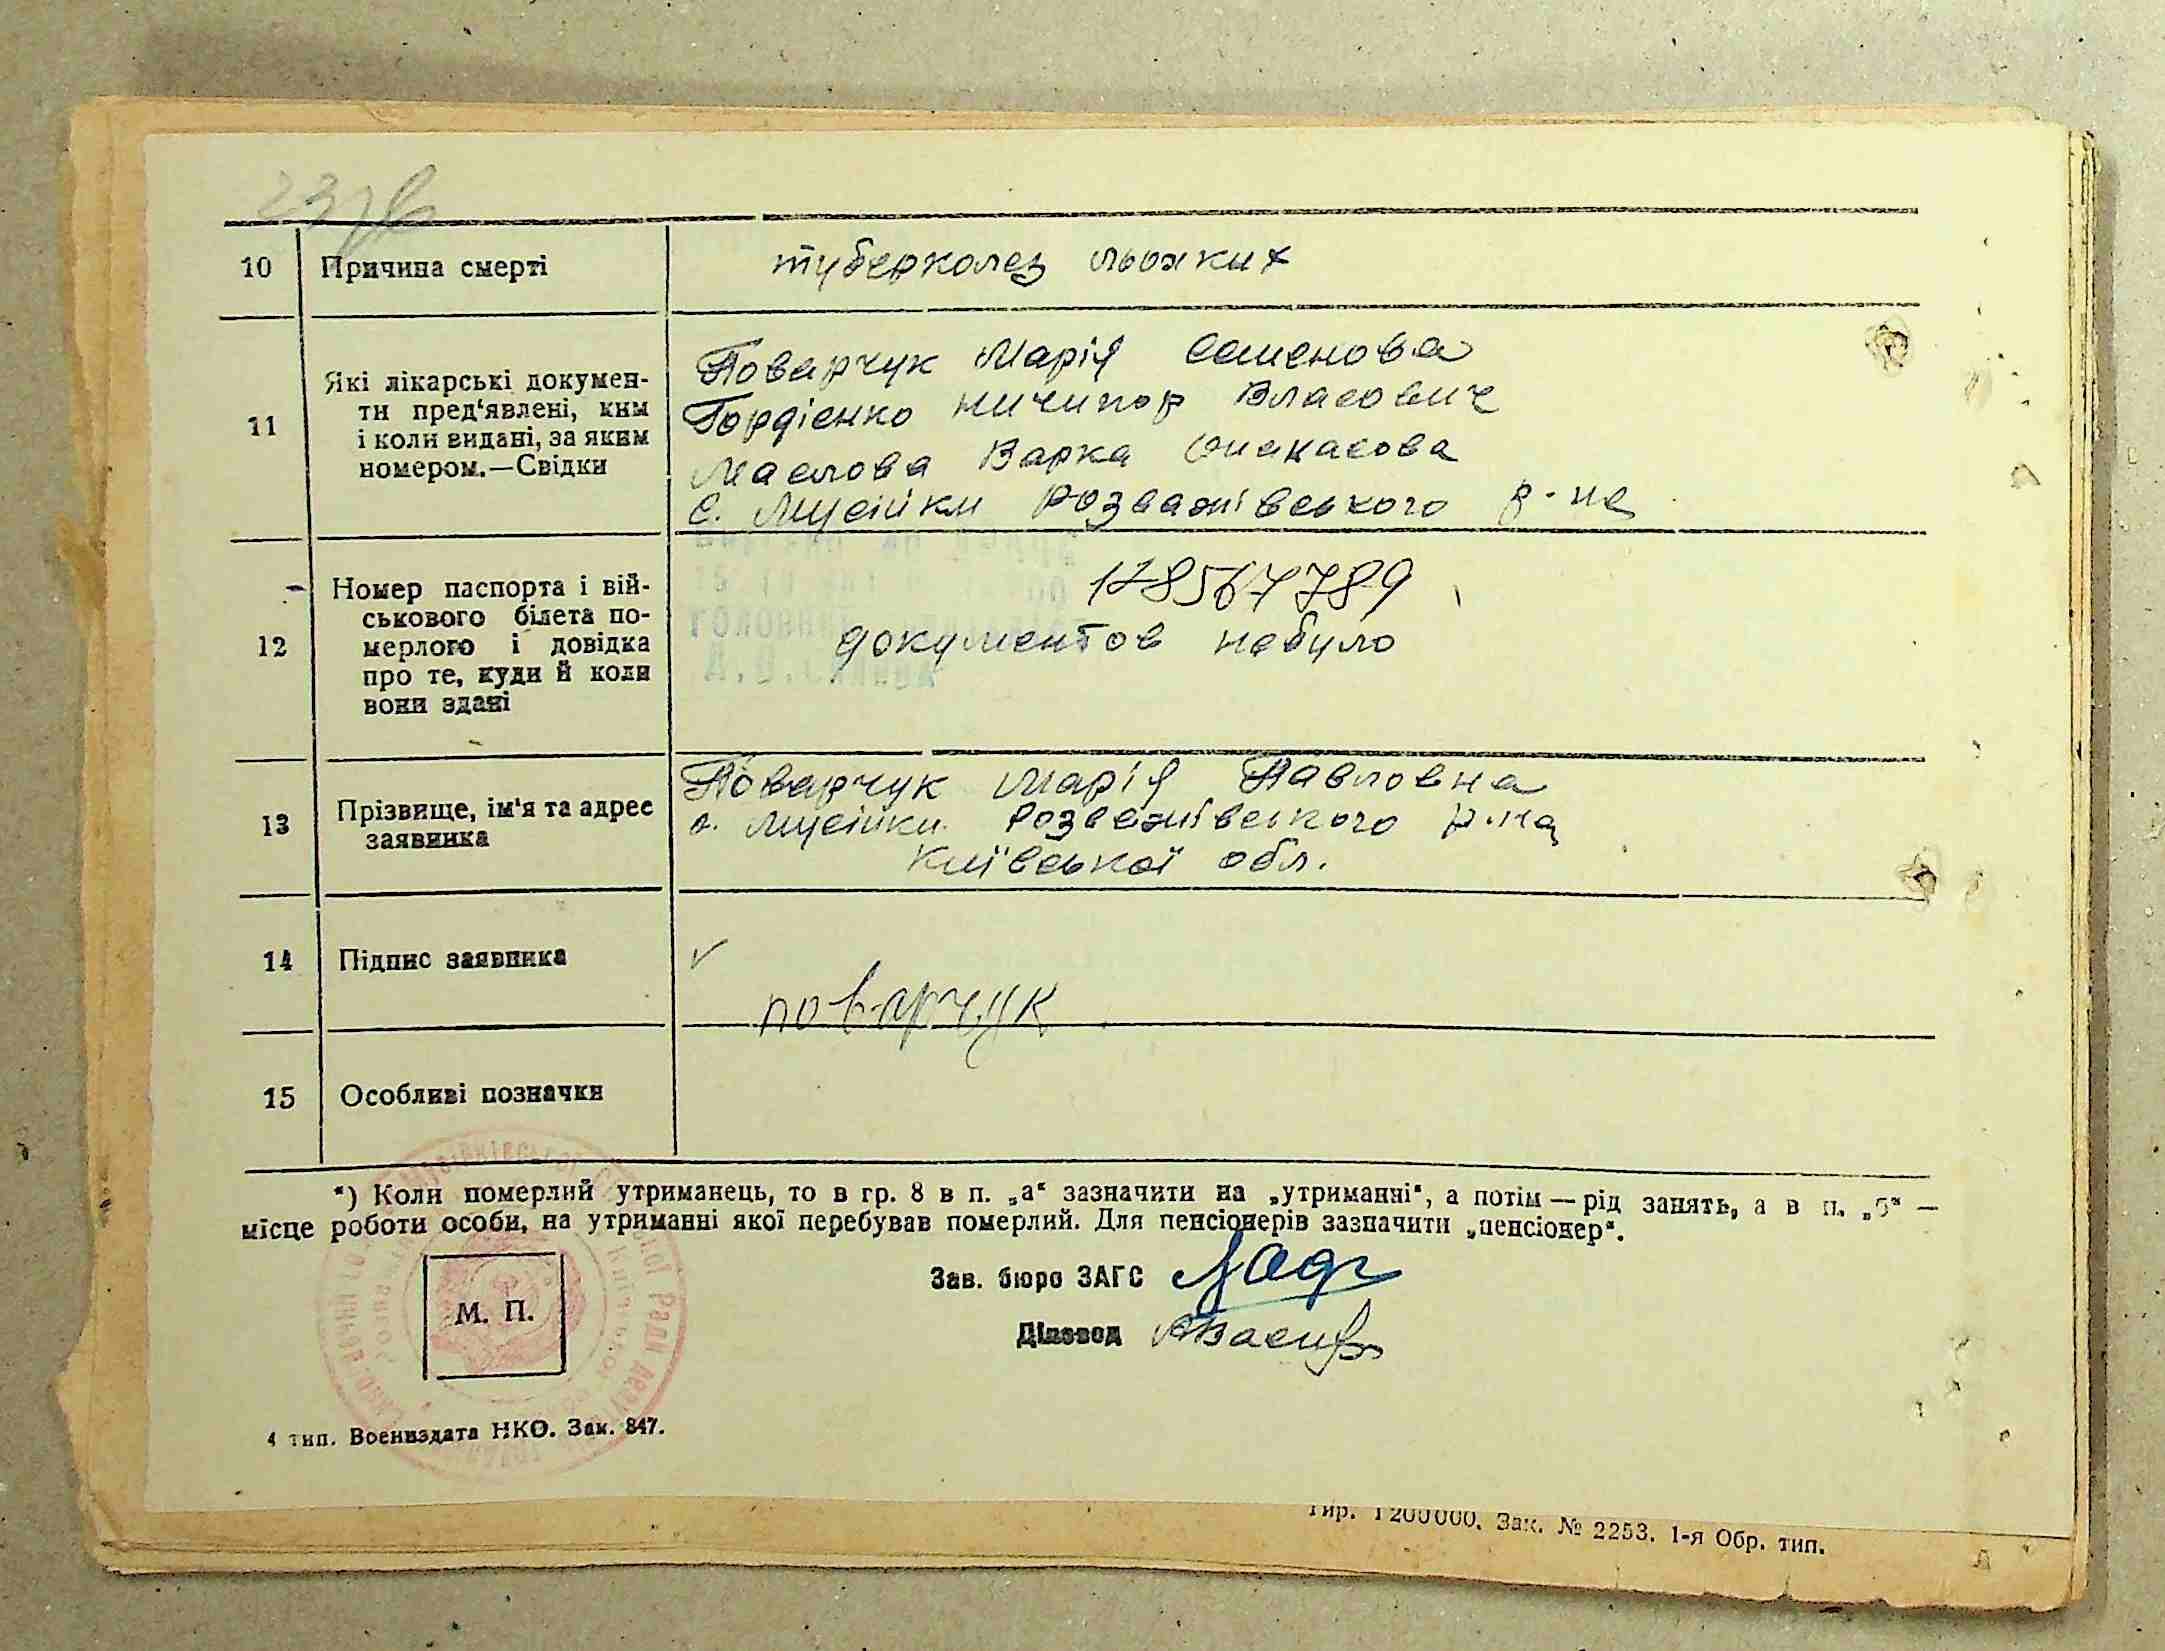 10 Причина смерті туберколез льожких
Поварчук Марія Семенова
Які лікарські докумен-
ти пред'явлені, ким Гордієнко Ничипор Власович
11
і коли видані, за яким Маслова Варка Опанасова
номером.—Свідки
с. Мусійки Розважівського р-на
Номер паспорта і вій-
ськового білета по-
12 мерлого і довідка документов небуло
про те, куди й коли
вони здані
Поварчук Марія Павловна
13 Прізвище, ім'я та адрес с. Мусійки Розважівського р-на
заявника Київської обл.
14 Підпис заявника
поварчук
15 Особливі позначки
*) Коли померлий утриманець, то в гр. 8 в п. „а“ зазначити на „утриманні“, а потім — рід занять, а в п. „б“ —
місце роботи особи, на утриманні якої перебував померлий. Для пенсіонерів зазначити „пенсіонер“.
Зав. бюро ЗАГС
М. П.
Діловод
4 тип. Воениздата НКО. Зак. 847.
Тир. 1 200 000. Зак. № 2253. 1-я Обр. тип.